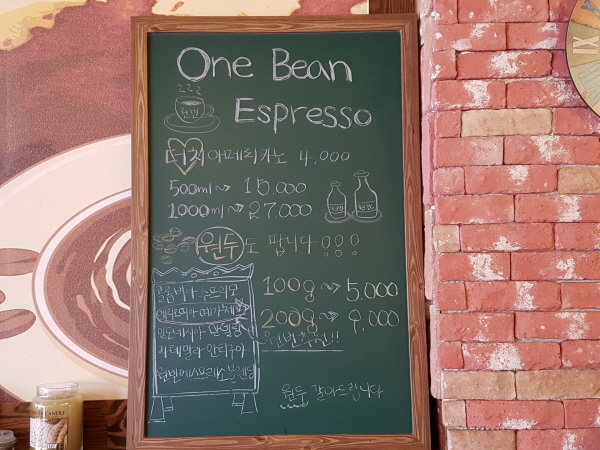 One Bean
Espresso
원빈
더치 아메리카노 4,000
500ml~> 15,000
1000ml~> 27,000
원빈
원빈
원두도 팝니다!!!
콜롬비아 수프리모
에티오피아 예가체프
인도네시아 만델링
과테말라 안티구아
원빈에스프레소블렌딩
100g~> 5,000
200g~> 9,000
원빈추천!!
원두 갈아드립니다
CANDLE
IX